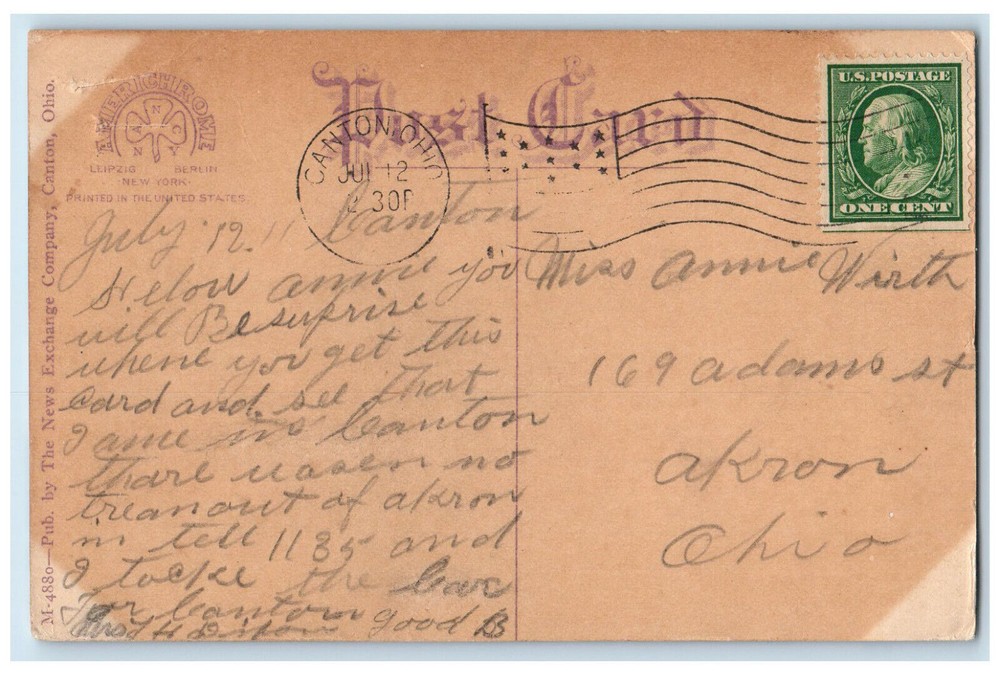 AMERICHROME
ANC
NY
LEIPZIG BERLIN
NEW YORK
PRINTED IN THE UNITED STATES.
Post Card
CANTON, OHIO
JUL 12
2 30P
U.S. POSTAGE
ONE CENT
M-4880—Pub. by The News Exchange Company, Canton, Ohio.
July 12 11 Canton
Helow Annie you
will Be surprise
whene you get this
Card and see That
I ame in Canton
thare no
treanout of akron
in tell 1135 and
I tocke the Car
For Canton good B
Miss Annie Wirth
169 adams st
Akron
Ohio